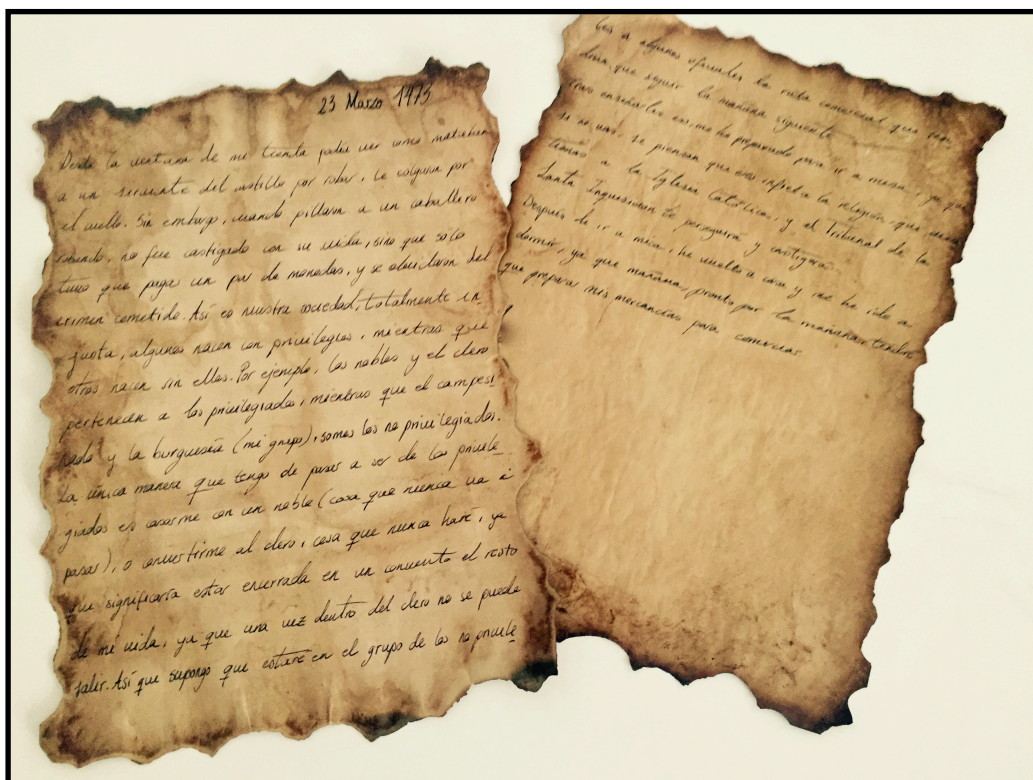 23 Marzo 1475
Desde la ventana de mi tienda podía ver como mataban
a un sirviente del castillo por robar, le colgaron por
el cuello. Sin embargo, cuando pillaron a un caballero
robando, no fue castigado con su vida, sino que solo
tuvo que pagar un par de monedas, y se olvidaron del
crimen cometido. Así es nuestra sociedad, totalmente in
justa, algunos nacen con privilegios, mientras que
otros nacen sin ellos. Por ejemplo, los nobles y el clero
pertenecen a los privilegiados, mientras que el campesi
nado y la burguesía (mi grupo), somos los no privilegiados.
La única manera que tengo de pasar a ser de los privile
giados es casarme con un noble (cosa que nunca va a
pasar), o convertirme al clero, cosa que nunca haré, ya
que significaría estar encerrada en un convento el resto
de mi vida, ya que una vez dentro del clero no se puede
salir. Así que supongo que estaré en el grupo de los no privile
a algunos oficiales la ruta comercial que
que seguir la mañana siguiente.
Tras enseñarles eso, me he preparado para ir a misa, ya que
si no vas, se piensan que eres infiel a la religión, que
a la Iglesia Católica, y el Tribunal de la
Santa Inquisición te perseguirá y castigará.
Después de ir a misa, he vuelto a casa y me he ido a
dormir, ya que mañana, pronto por la mañana, tendré
que preparar mis mercancías para comerciar.